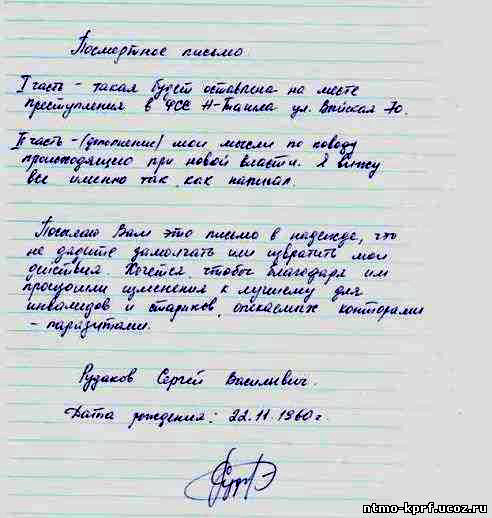 Посмертное письмо
I часть – такая будет оставлена на месте
преступления в ФСС Н-Тагила ул. Выйская 70.
II часть – (дополнение) мои мысли по поводу
происходящего при новой власти. Я вижу
все именно так, как написал.
Посылаю Вам это письмо в надежде, что
не дадите замолчать или извратить мои
действия. Хочется, чтобы благодаря им
произошли изменения к лучшему для
инвалидов и стариков, опекаемых конторами
– паразитами.
Рудаков Сергей Васильевич.
Дата рождения: 22.11.1960 г.
ntmo-kprf.ucoz.ru